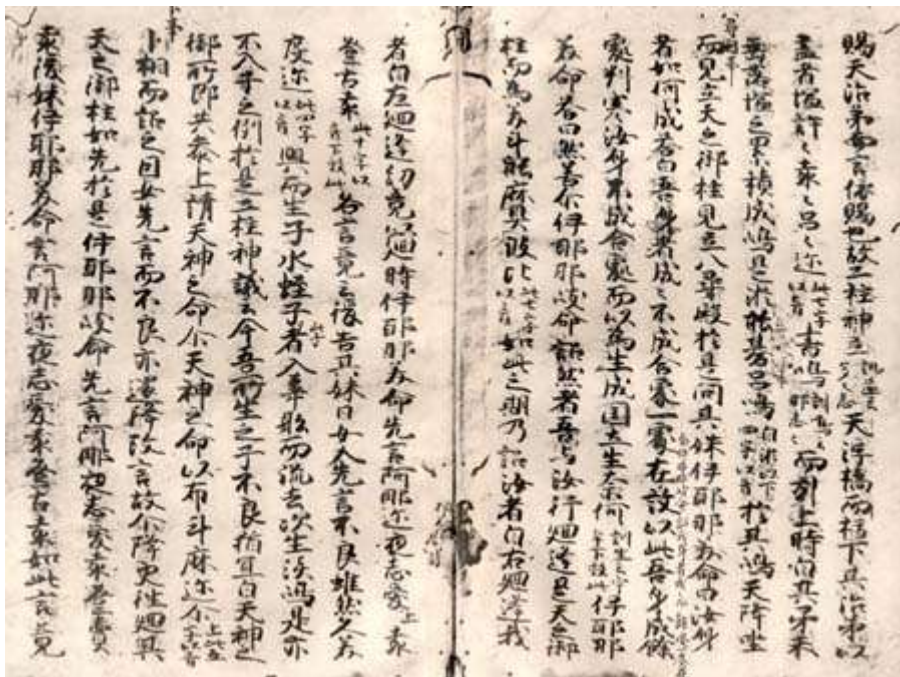 賜天沼弟而言依賜也故二柱神立訓立云多々志天浮橋而指下其沼弟以
畫者塩許々袁々呂々迩此七字以音畫鳴訓鳴云那志々而引上時自其矛末
垂落塩之累積成嶋是淤能碁呂嶋自淤以下四字以音於其嶋天降坐
而見立天之御柱見立八尋殿於是問其妹伊耶那美命曰汝身
者如何成答曰吾身者成々不成合處一處在故以此吾身成餘
處刺塞汝身不成合處而以為生成国土生奈何訓生云宇牟下效此伊耶那
美命答曰然善尓伊耶那岐命詔然者吾与汝行迴逢是天之御
柱而為美斗能麻具波比此七字以音如此之期乃詔汝者自右迴逢我
者自左迴逢約竟以迴時伊耶那美命先言阿那迩夜志愛上袁
登古袁此十字以音下效此各言竟之後告其妹曰女人先言不良雖然久美
度迩此四字以音興而生子水蛭子者入葦船而流去次生淡嶋是亦
不入子之例於是二柱神議云今吾所生之子不良猶宜白天神之
御所即共参上請天神之命尓天神之命以布斗麻迩尓上此五字以音
卜相而詔之因女先言而不良亦還降改言故尓降更往迴其
天之御柱如先於是伊耶那岐命先言阿那迩夜志愛袁登賣
袁後妹伊耶那美命言阿那迩夜志愛袁登古袁如此言竟